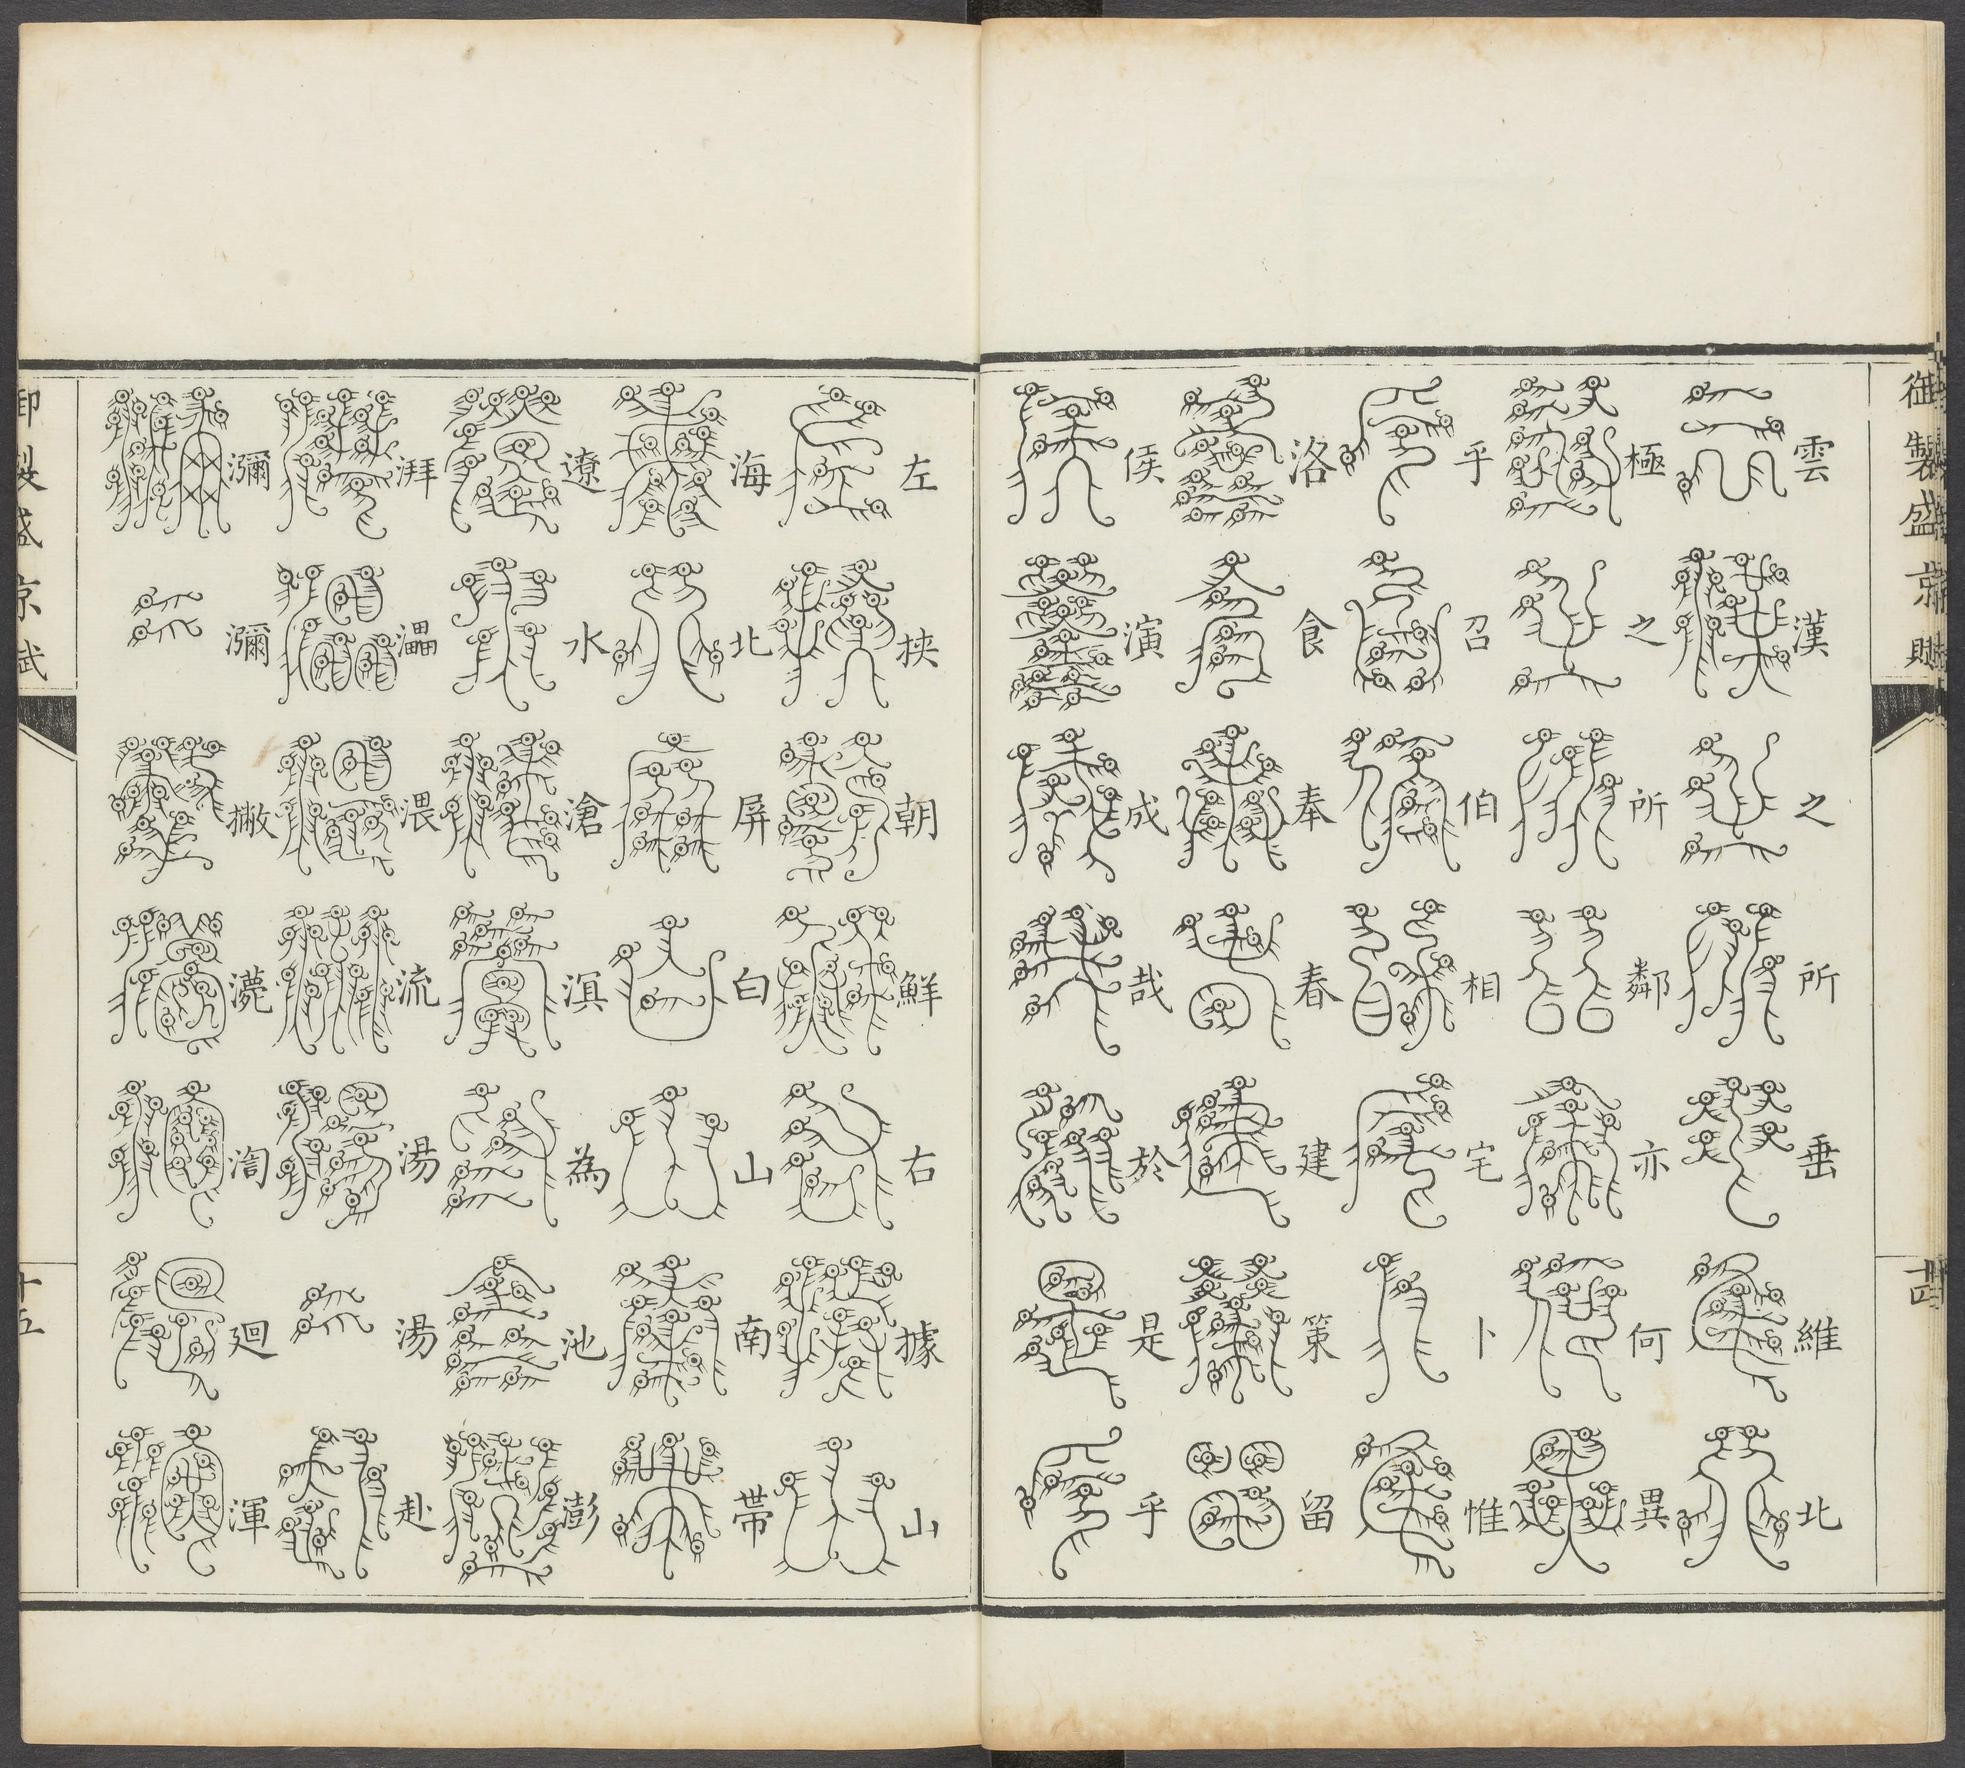 御製盛京賦
雲漢之所垂維北
極之所鄰亦何異
乎召伯相宅卜惟
洛食奉春建策留
侯演成哉於是乎
十四
左挾朝鮮右據山
海北屏白山南帶
遼水滄溟為池澎
湃㶟渨流湯湯赴
瀰瀰撇灋㵧廻渾
御製盛京賦
十五